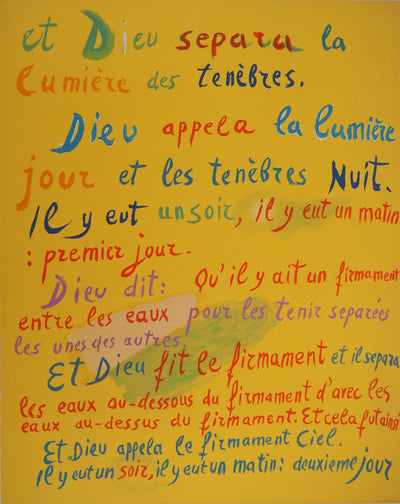 et Dieu separa la
lumière des tenèbres.
Dieu appela la lumière
jour et les tenèbres Nuit.
Il y eut un soir, il y eut un matin
: premier jour.
Dieu dit: Qu'il y ait un firmament
entre les eaux pour les tenir separées
les unes des autres.
Et Dieu fit le firmament et il separa
les eaux au-dessous du firmament d'avec les
eaux au-dessus du firmament. Et cela fut ainsi
Et Dieu appela le firmament Ciel.
il y eut un soir, il y eut un matin: deuxième jour